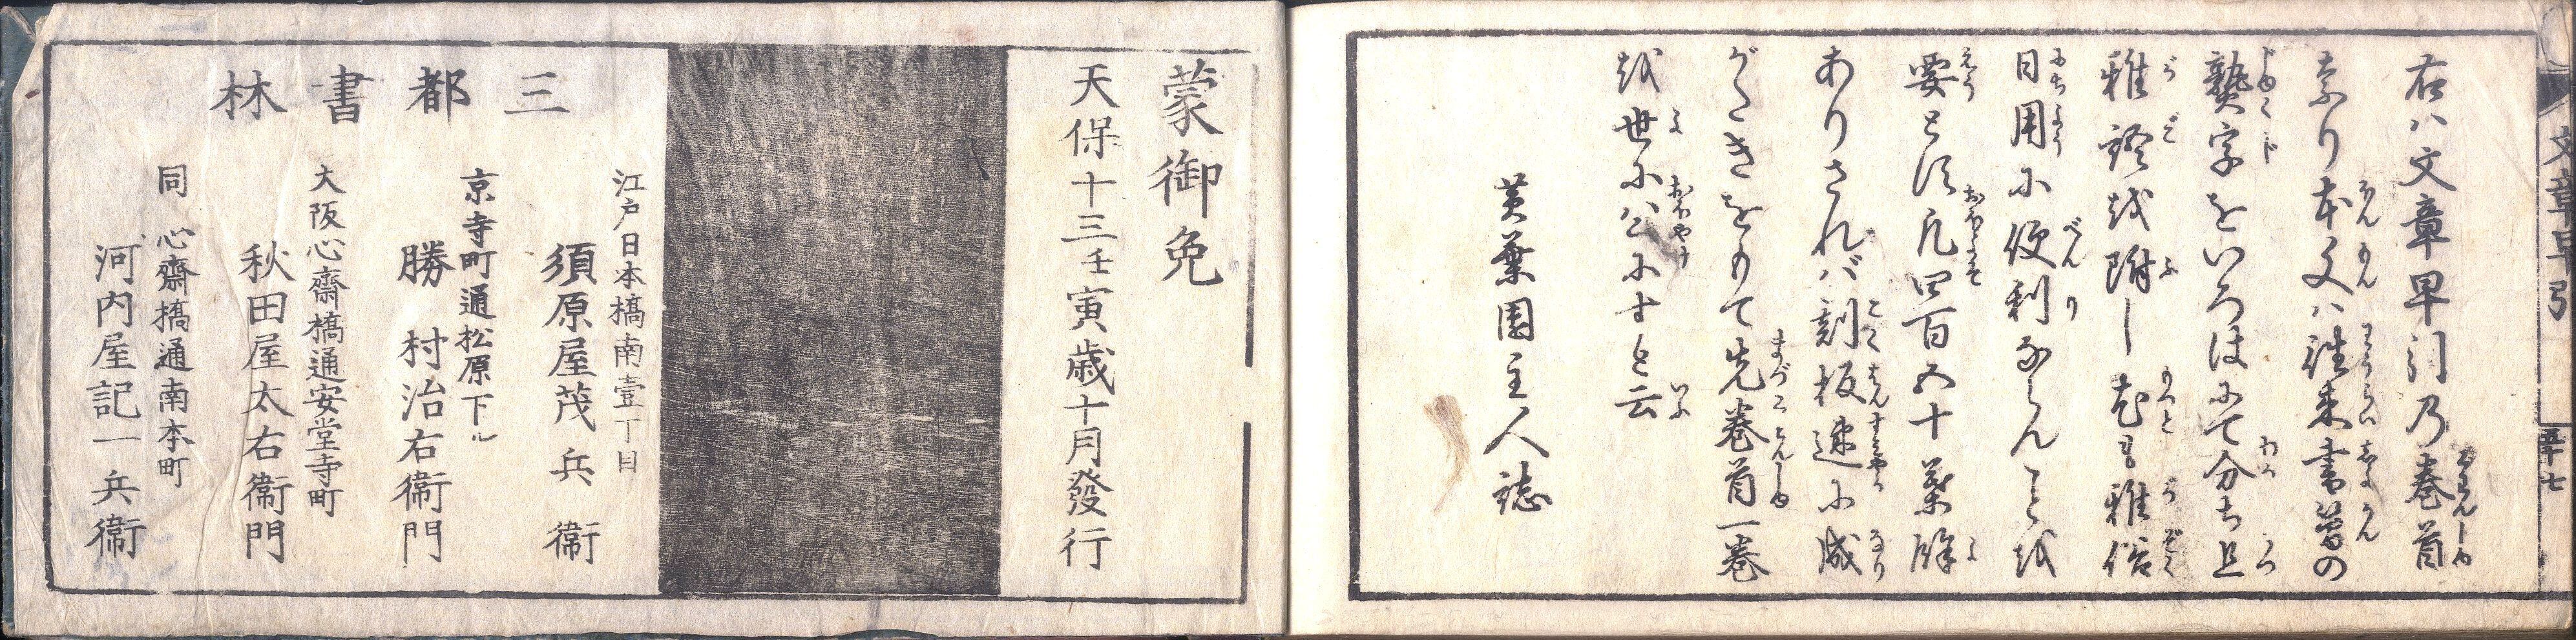 右ハ文章早引乃巻首
なり本文ハ往来書簡の
熟字をいろはにて分ち且
雅語越附し尤も雅俗
日用に便利ならんこと越
要とす凡四百五十葉餘
ありされバ刻板速に成
がたきをもて先巻首一巻
越世に公にすと云
黄葉園主人誌
文章早引
五十七
蒙御免
天保十三壬寅歳十月發行
三都書林
江戸日本橋南壹丁目
須原屋茂兵衛
京寺町通松原下ル
勝村治右衛門
大阪心齋橋通安堂寺町
秋田屋太右衛門
同心齋橋通南本町
河内屋記一兵衛